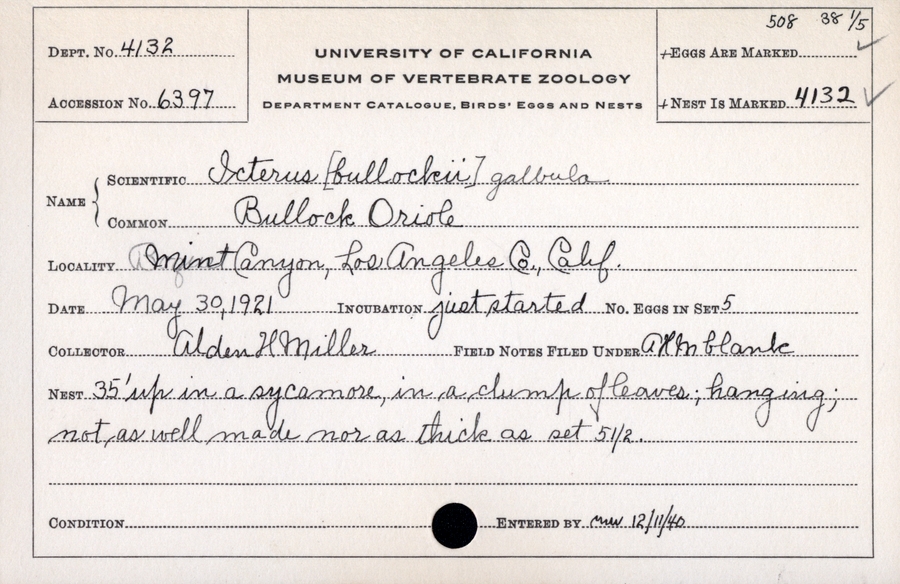 508 38 1/5
DEPT. NO. 4132
UNIVERSITY OF CALIFORNIA
+EGGS ARE MARKED
MUSEUM OF VERTEBRATE ZOOLOGY
ACCESSION NO. 6397
DEPARTMENT CATALOGUE, BIRDS' EGGS AND NESTS
+NEST IS MARKED 4132
NAME
SCIENTIFIC Icterus [bullockii] galbula
COMMON Bullock Oriole
LOCALITY Mint Canyon, Los Angeles Co., Calif.
DATE May 30, 1921 INCUBATION just started NO. EGGS IN SET 5
COLLECTOR Alden H Miller FIELD NOTES FILED UNDER AHM blank
NEST 35' up in a sycamore, in a clump of leaves; hanging;
not as well made nor as thick as set 51/2.
CONDITION ENTERED BY 12/11/40